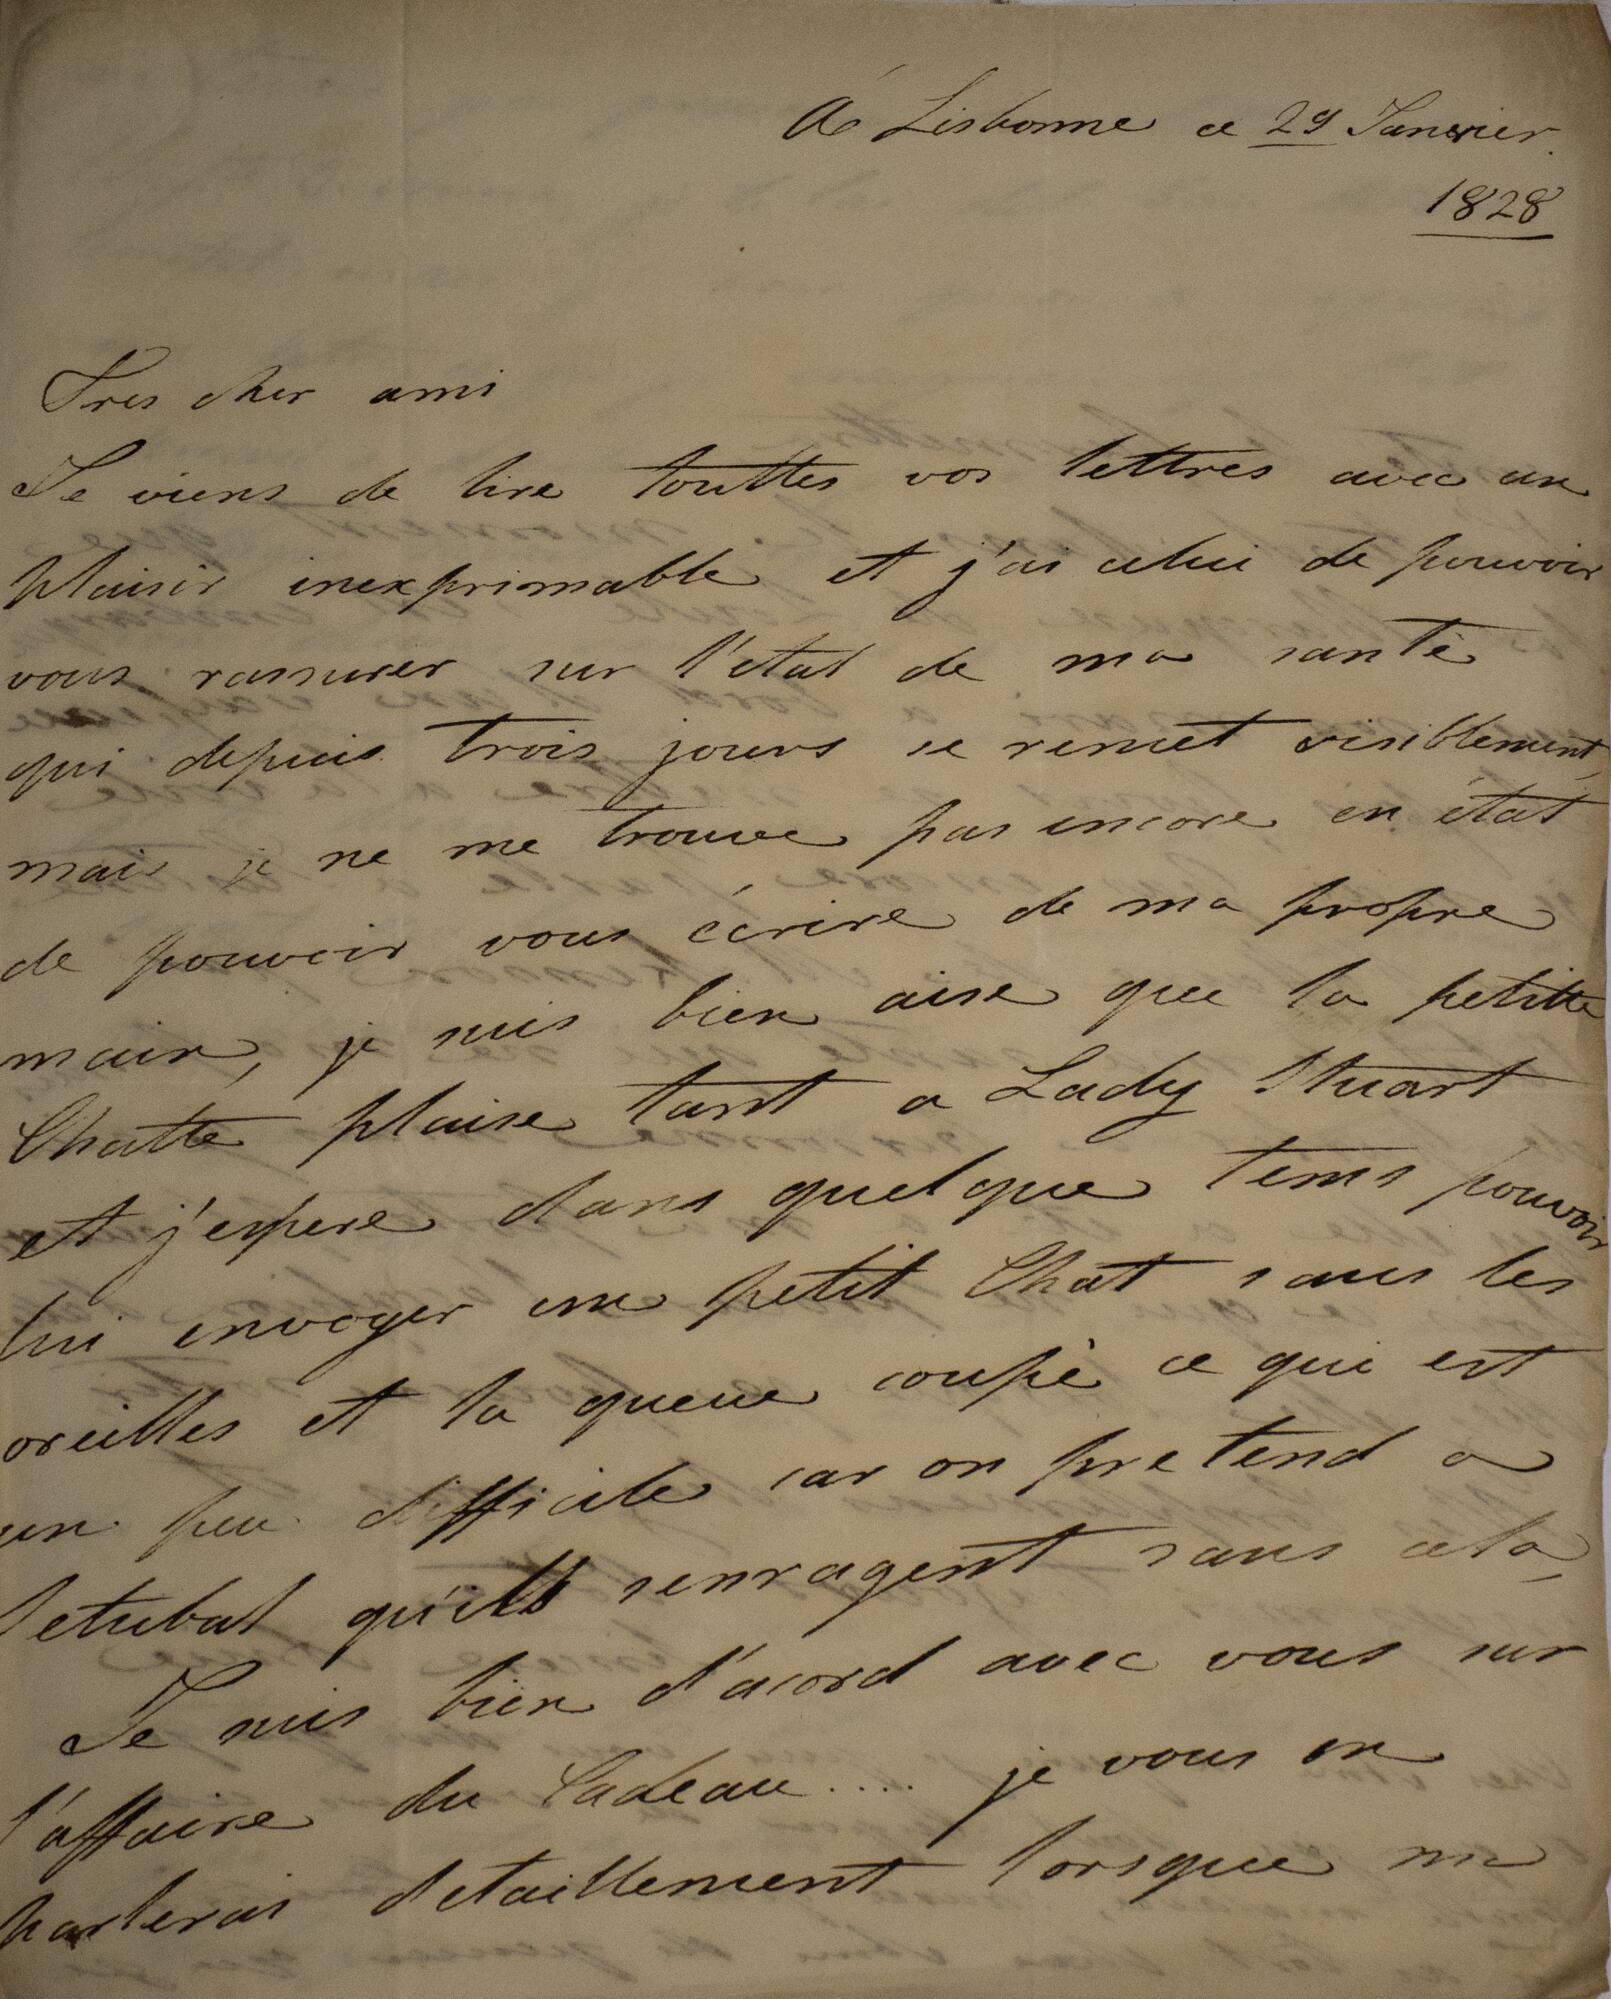 A Lisbonne ce 29 Janvier.
1828
Tres cher ami
Je viens de lire touttes vos lettres avec un
plaisir inexprimable et j'ai celui de pouvoir
vous rassurer sur l'etat de ma santè
qui depuis trois jours se remet visiblement,
mais je ne me trouve pas encore en état
de pouvoir vous écrire de ma propre
main, je suis bien aise que la petitte
Chatte plaise tant a Lady Stuart
et j'espere dans quelque tems pouvoir
lui envoyer un petit Chat sans les
oreilles et la queue coupè ce qui est
un peu difficile car on pretend a
Setubal qu'ils senragent sans cela,
Je suis bien d'acord avec vous sur
l'affaire du Cadeau.... je vous en
parlerai detaillement lorsque ma